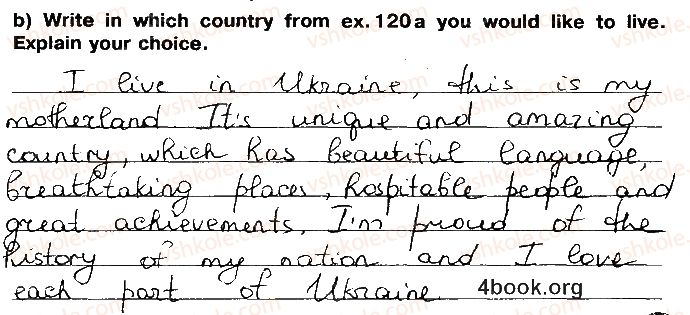 b) Write in which country from ex. 120a you would like to live.
Explain your choice.
I live in Ukraine, this is my
motherland It's unique and amazing
country, which has beautiful language,
breathtaking places, hospitable people and
great achievements. I'm proud of the
history of my nation and I love
each part of Ukraine 4book.org